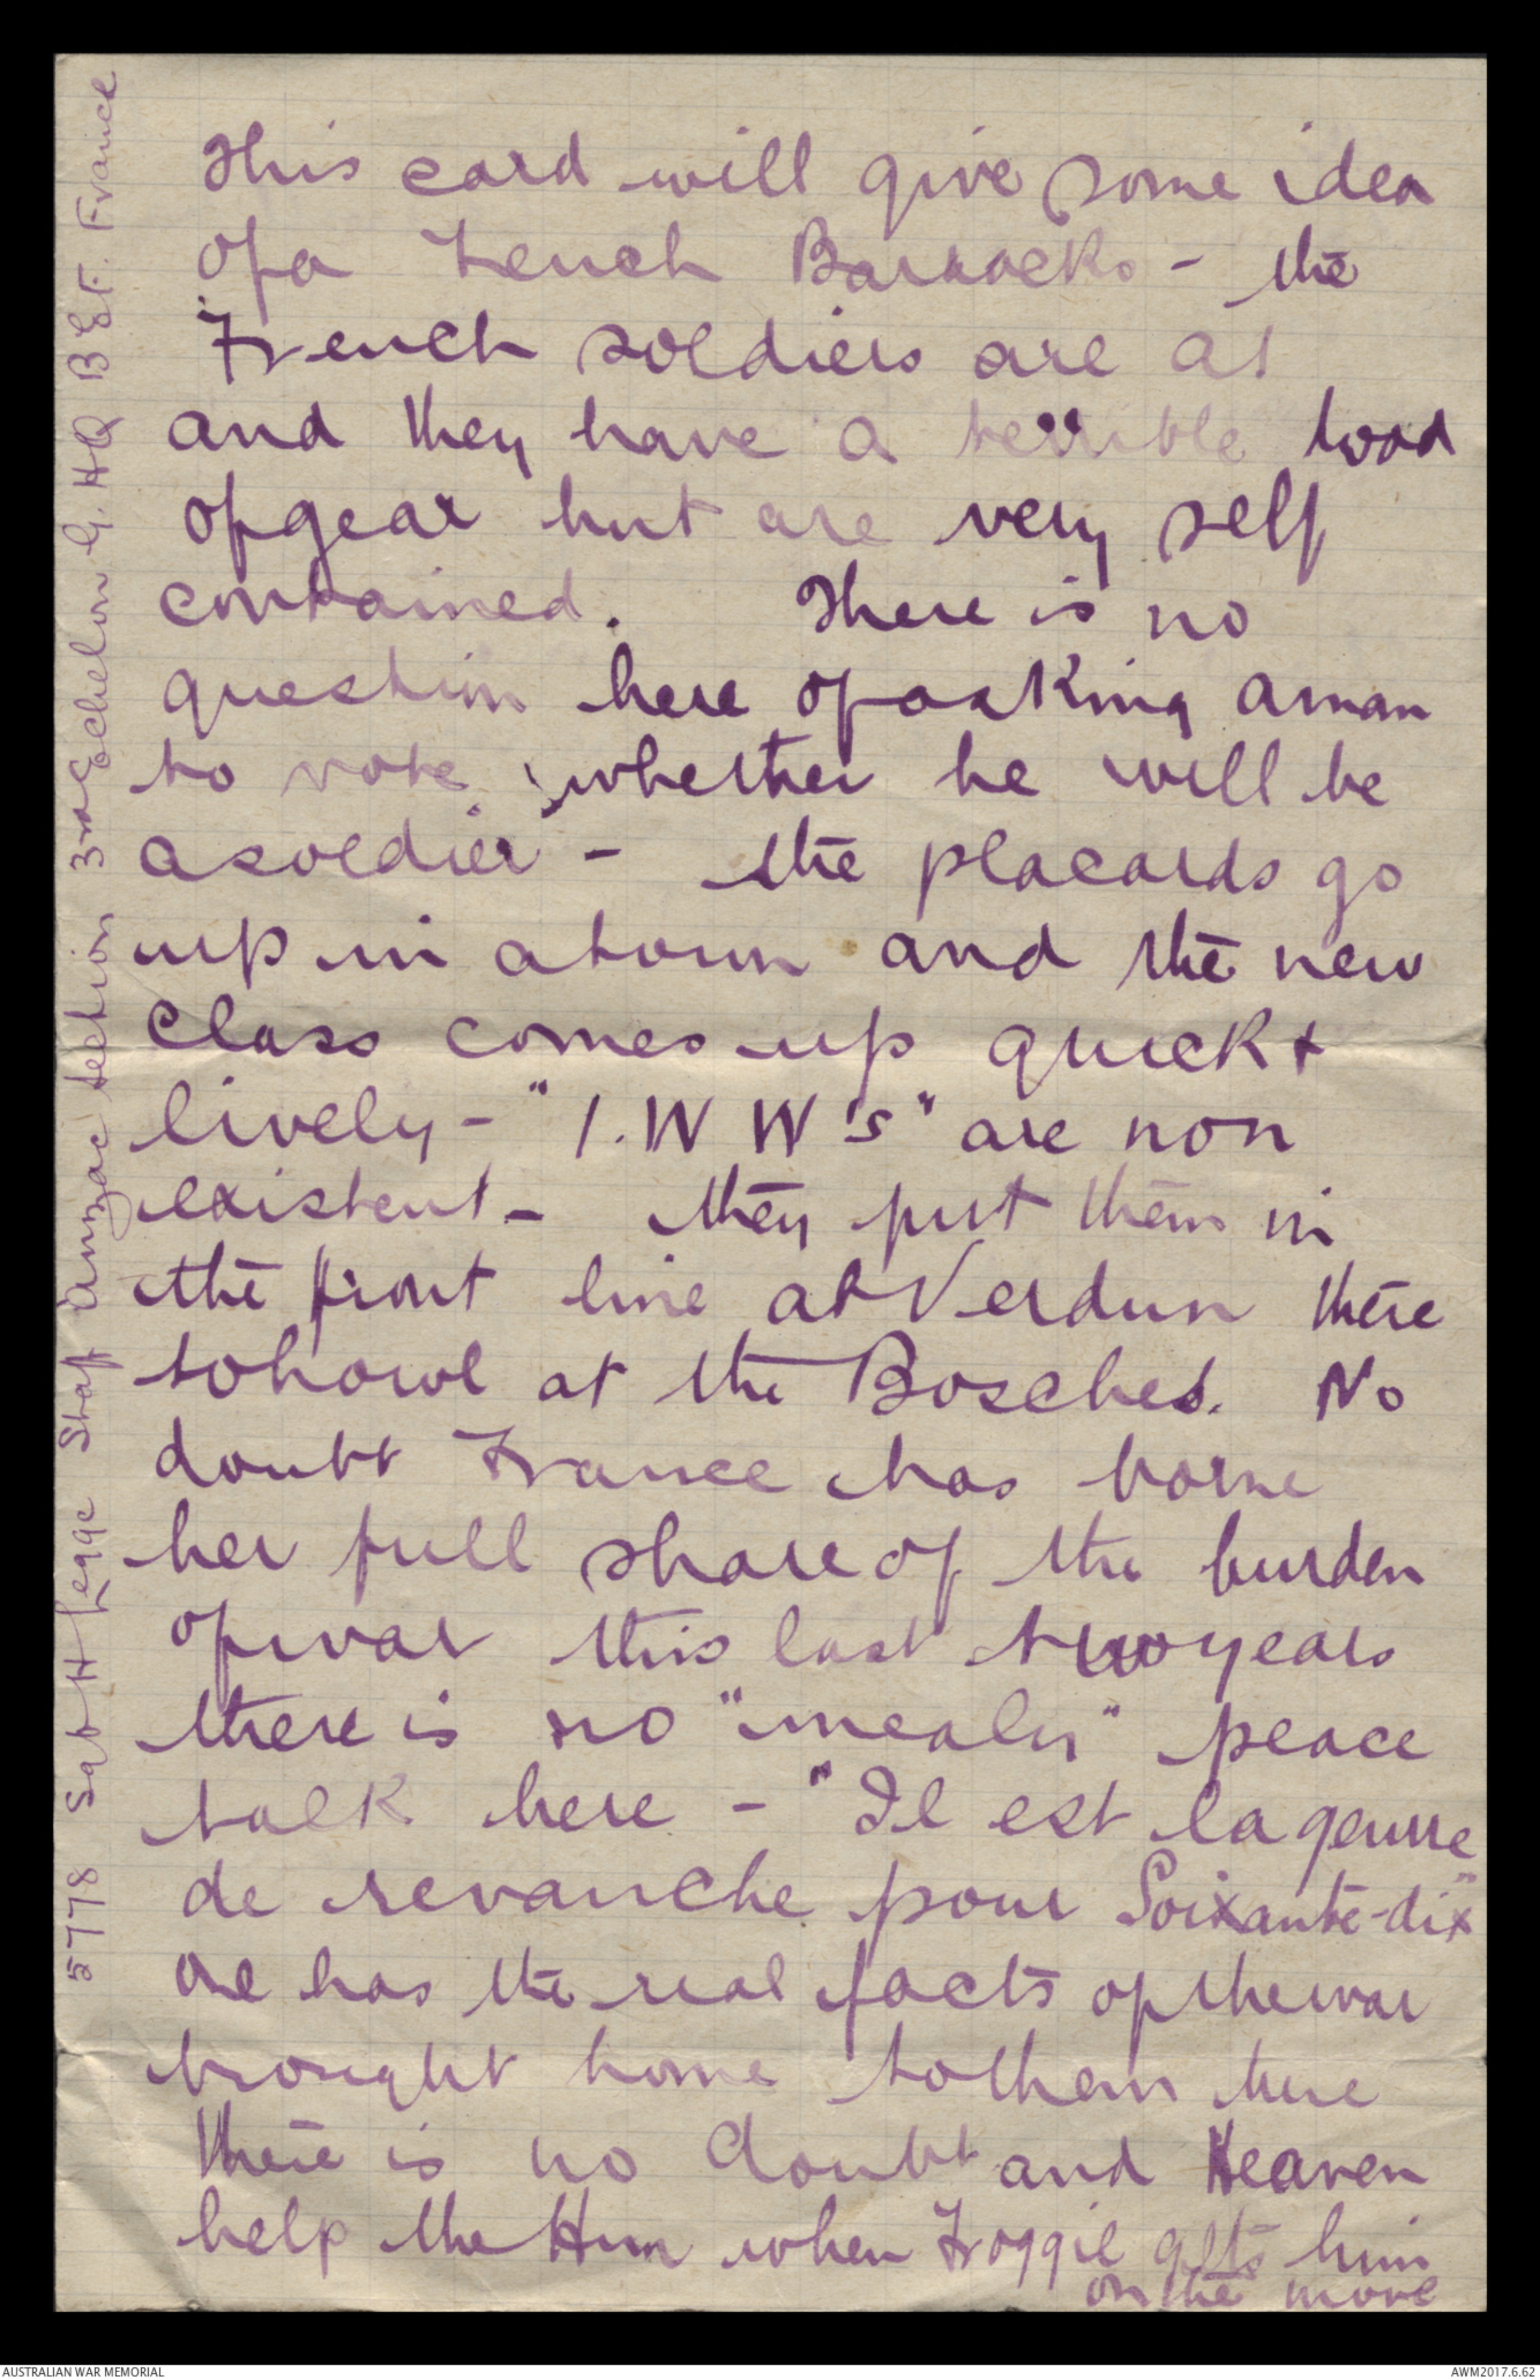 This card will give some idea
of a French Barracks - the
French soldiers are at
and they have a terrible load
of gear but are very self
contained. There is no
question here of asking a man
to vote whether he will be
a soldier - the placards go
up in a town and the new
class comes up quick +
lively - "I.W W's" are non
existent - they put them in
the front line at Verdun there
to howl at the Bosches. No
doubt France has borne
her full share of the burden
of war this last two years
there is no "mealy" peace
talk here - "Il est la geurre
de revanche pour Soixante-dix"
One has the real facts of the war
brought home to them here
there is no doubt and Heaven
help the Hun when Froggie gets him
on the move
5778 Sgt H Legge Staff Anzac Section 3rd Echelon G.HQ BEF. France
AUSTRALIAN WAR MEMORIAL
AWM2017.6.62